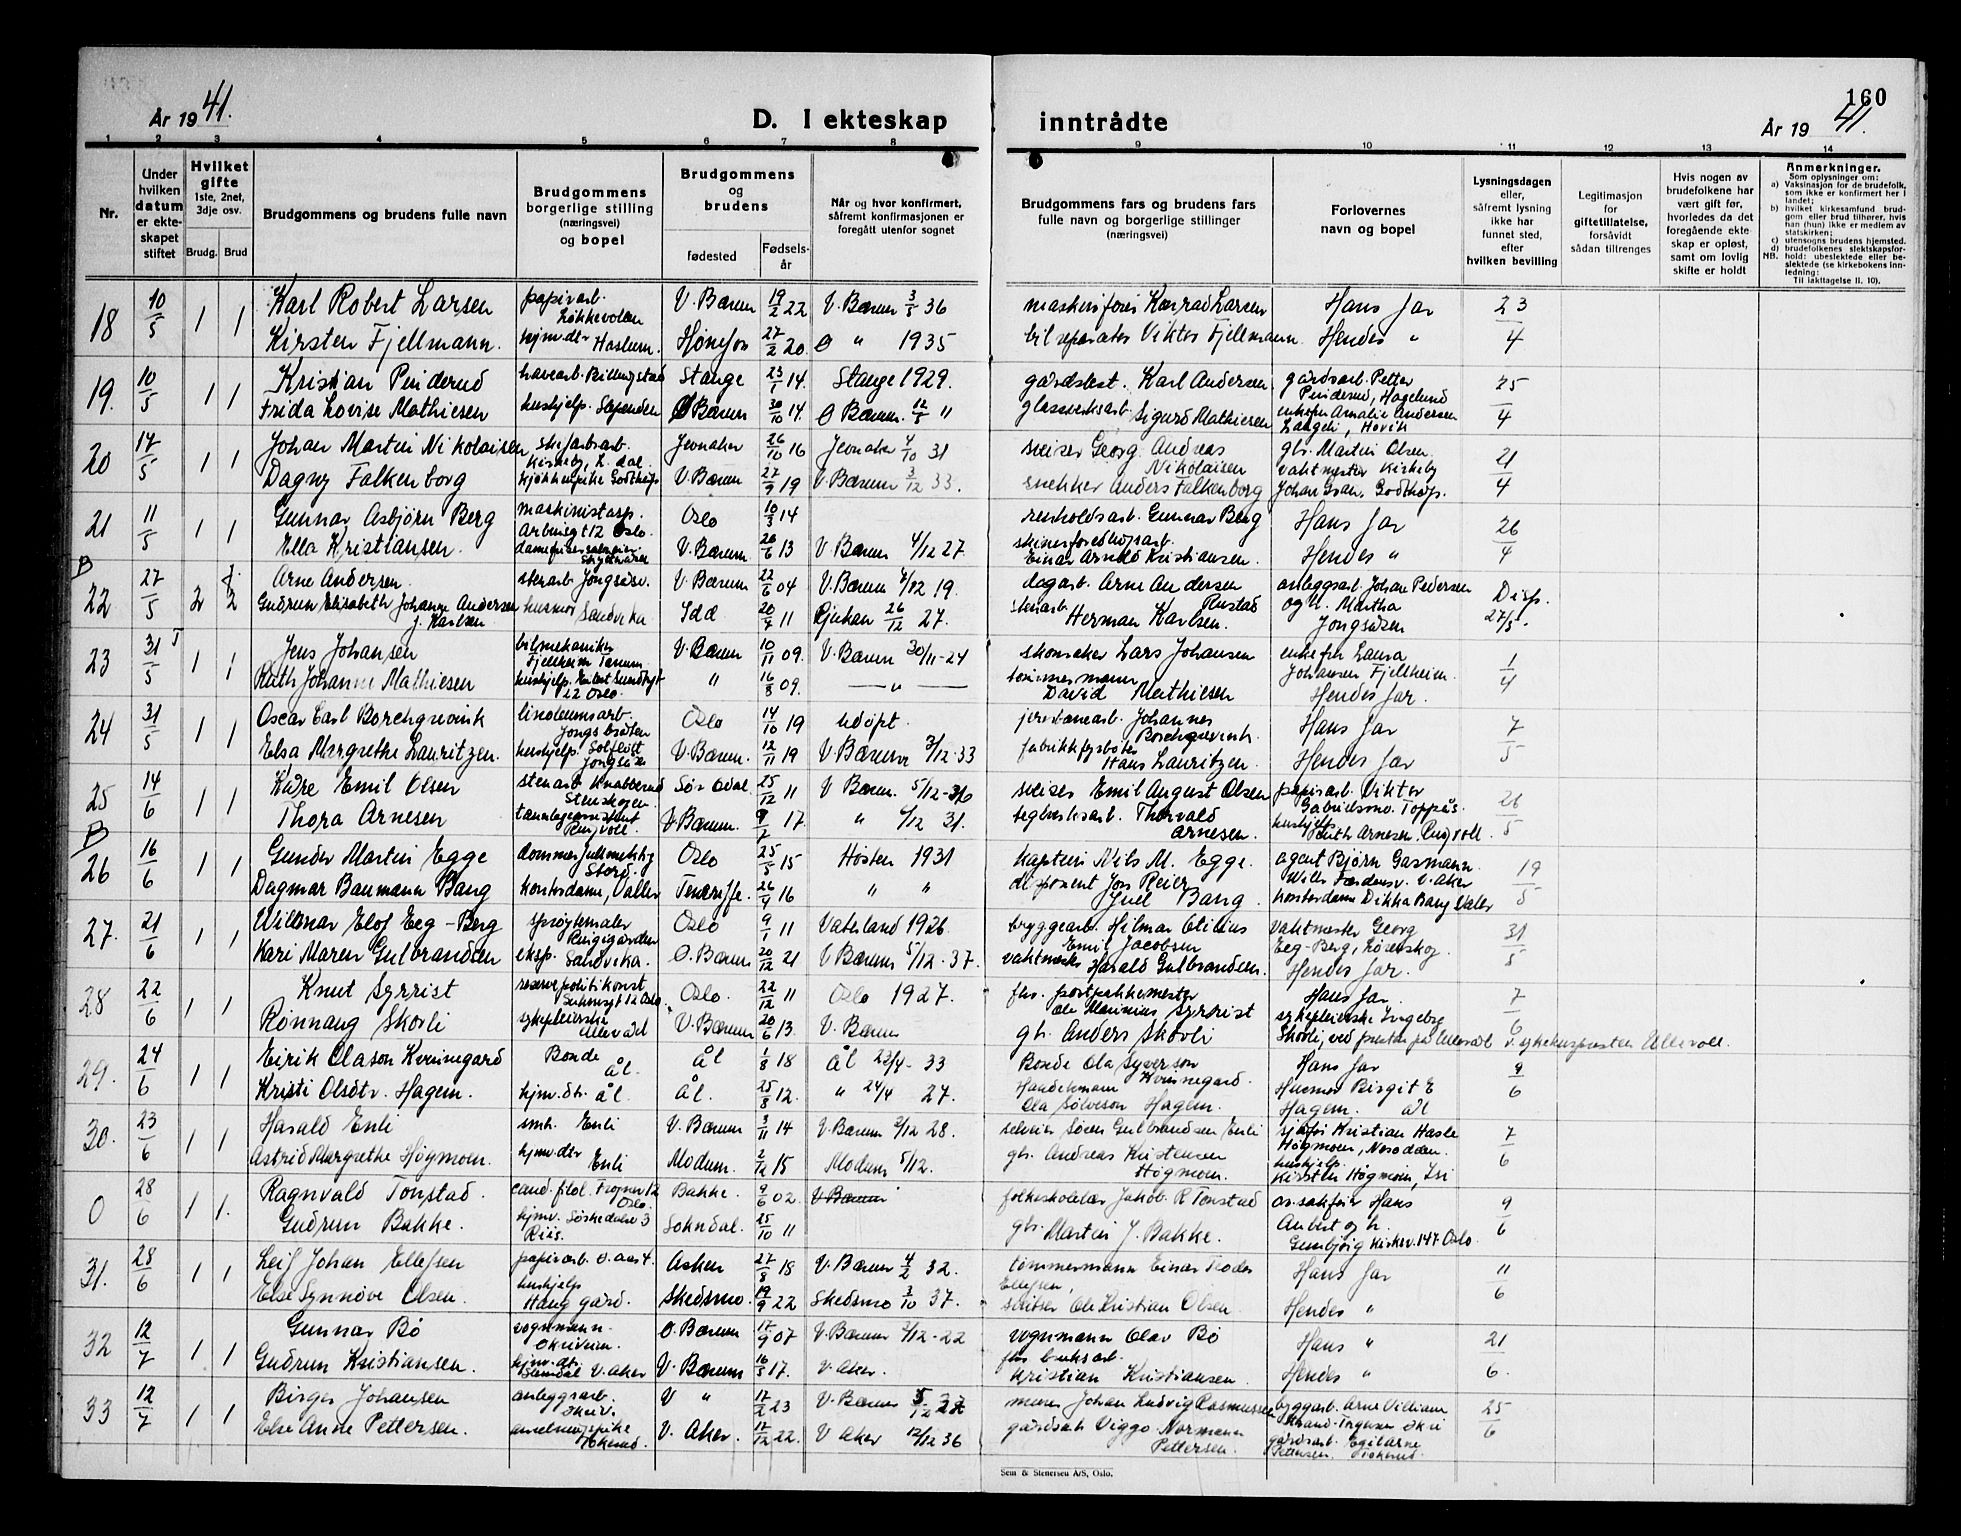 160
År 1941.
D. I ekteskap inntrådte
År 1941.
1 2 3 4 5 6 7 8 9 10 11 12 13 14
Nr.
Under hvilken datum er ekteskapet stiftet
Hvilket gifte 1ste, 2net, 3dje osv.
Brudg. Brud
Brudgommens og brudens fulle navn
Brudgommens borgerlige stilling (næringsvei) og bopel
Brudgommens og brudens
fødested
Fødselsår
Når og hvor konfirmert, såfremt konfirmasjonen er foregått utenfor sognet
Brudgommens fars og brudens fars fulle navn og borgerlige stillinger (næringsvei)
Forlovernes navn og bopel
Lysningsdagen eller, såfremt lysning ikke har funnet sted, efter hvilken bevilling
Legitimasjon for giftetillatelse, forsåvidt sådan tiltrenges
Hvis nogen av brudefolkene har vært gift før, hvorledes da det foregående ekteskap er opløst, samt om lovlig skifte er holdt
Anmerkninger.
Som oplysninger om:
a) Vaksinasjon for de brudefolk, som ikke er konfirmert her i landet;
b) hvilket kirkesamfund brudgom eller brud tilhører, hvis han (hun) ikke er medlem av statskirken;
c) utensogns brudens hjemsted.
d) brudefolkenes slektskapsforhold: ubeslektede eller beslektede (se kirkebokens innledning:
NB. Til iakttagelse II. 10).
18 10/5 1 1 Karl Robert Larsen papirarb. Løkkevolen V. Bærum 19/2 22 V. Bærum 3/5 36 maskinfører Konrad Larsen Hans far 23/4
Kirsten Fjellmann. hjmv. dtr Haslum. Hønefos 27/2 20 " 1935 bilreparatør Viktor Fjellmann Hendes "
19. 10/5 1 1 Kristian Pinderud havearb. Billingstad Stange 23/1 14. Stange 1929. gårdsbest. Karl Andersen gårdsarb. Petter Pinderud, Hagelund 25/4
Frida Lovise Mathiesen hushjelp. Slependen Ø Bærum 30/10 14. Ø Bærum. 12/5 " glassverksarb. Sigurd Mathiesen enkefru Amalie Andersen Langeli, Høvik
20 17/5 1 1 Johan Martin Nikolaisen Kirkeby, L. dal. Jevnaker 26/10 16 Jevnaker 4/10 31 sveiser Georg Andreas Nikolaisen gbr. Martin Olsen 21/4
Dagny Falkenborg kjøkkenpike Godthåp V. Bærum 27/9 19 V Bærum 3/12 33. snekker Anders Falkenborg vaktmester Kirkeby Johan Gran, Godthåp.
21 11/5 1 1 Gunnar Asbjørn Berg maskinistasp. Oslo 10/3 14 renholdsarb. Gunnar Berg Hans far 26/4
Ella Kristiansen. V. Bærum 20/6 13 V Bærum 4/12 27. Einar Arnold Kristiansen. Hendes "
B
22 27/5 2 2 Arne Andersen. stenarb. Jongsåsv. V. Bærum 22/6 04 V. Bærum 4/12 19. dagarb. Arne Andersen Rustad anleggsarb. Johan Pedersen Disp. 27/5.
Gudrun Elisabeth Johanne Andersen f. Karlsen husmor Sandvika Idd 20/7 11 Rjukan 26/12 27. Herman Karlsen. og h. Martha Jongsåsen
23 31/5 1 1 Jens Johansen bilmekaniker Fjellheim Tanum V. Bærum 10/11 09. V. Bærum 30/11-24 skomaker Lars Johansen enkefru Laura Johansen Fjellheim 1/4
Ruth Johanne Mathiesen hushjelp. 12 Oslo. " 16/8 09. — " — tømmermann David Mathiesen Hendes far.
24 31/5 1 1 Oscar Carl Borchgrevink linoleumsarb. Jongsbråten Oslo 14/10 19 udøpt. Johannes Borchgrevink Hans far 7/5
Elsa Margrethe Lauritzen. hushjelp. Solfløtt Jongsås V. Bærum. 12/11 19 V Bærum 3/12-33 fabrikkfyrbøter Hans Lauritzen. Hendes far
25 14/6 1 1 Kåre Emil Olsen stenarb. Knabberud Stenskogen. Sør Odal. 25/12 11 V Bærum. 5/12-36 sveiser Emil August Olsen papirarb. Viktor Gabrielsen. Toppås. 26/5
Thora Arnesen Ringvoll. V Bærum. 17. " 6/12 31. teglverksarb. Thorvald Arnesen. hushjelp Ruth Arnesen, Ringvoll.
B
26 16/6 1 1 Gunder Martin Egge Stord. Oslo 25/5 15 Høsten 1931 kaptein Nils M. Egge. agent Bjørn Gasmann V. Aker 19/5
Dagmar Baumann Bang kontordame, Valler Teneriffe. 26/4 16 " " disponent Jon Reier Juel Bang. kontordame Dikka Bang Valler
27. 21/6 1 1 Willmar Elof Eeg-Berg sprøytemaler Ringigården Oslo 9/1 11 Vaterland 1926. bryggearb. Hilmar Otilius Emil Jacobsen vaktmester Georg Eeg-Berg, Lørenskog 31/5
Kari Maren Gulbrandsen eksp. Sandvika. Ø. Bærum 20/12 21 V Bærum 5/12-37. vaktmester Harald Gulbrandsen. Hendes far.
28 22/6 1 1 Knut Syrrist reservepolitikonst 12 Oslo Oslo. 22/12 11 Oslo 1927. fhv. postpakkmester Ole Marinius Syrrist Hans far. 7/6
Rønnaug Skovli sykepleierske Ullevål V. Bærum 20/6 13. V. Bærum gb. Anders Skovli sykepleierske Ingeborg Skovli, ved presten på Ullevål sykehuspresten Ullevoll.
29. 24/6 1 1 Eirik Olason Kvinnegard Bonde ål. ål 1/8 18 ål 23/4-33 Bonde Ola Syverson Kvinnegard. Hans far 9/6
Kristi Olsdtr. Hagen. hjmv. dtr. ål ål. 25/8 12. " 24/4 27. Handelsmann Ola Sølveson Hagen. Husmor Birgit E Hagen. ål
30. 23/6 1 1 Harald Enli smb. Enli V. Bærum 3/11 14 V. Bærum 2/12 28. Søren Gulbrandsen Enli sjåfør Kristian Hasle Høgmoen, Nesodden. 7/6
Astrid Margrethe Høgmoen. hjmv. dtr Enli Modum. 2/12 15 Modum 5/12. gb. Andreas Kristensen Høgmoen. hushjelp Kirsten Høgmoen,
0 28/6 1 1. Ragnvald Tonstad. cand. filol. Frogner 12 Oslo. Bakke. 9/6 02. V Bærum folkeskolelær Jakob R Tonstad or.sakfører Hans Aubert og h. 9/6
Gudrun Bakke. hjmv. Sørkedalsv 3 Riis. Sokndal. 25/10 11 gb. Martin J. Bakke. Gunbjørg Kirkev. 147 Oslo.
31. 28/6 1 1 Leif Johan Ellefsen papirarb. Asker 27/8 18 V. Bærum 4/2 32. tømmermann Einar Ellefsen, Hans far 11/6
Else Synnøve Olsen. hushjelp Haug gård. Skedsmo. 19/9 22 Skedsmo 3/10 37. Ole Kristian Olsen Hendes "
32 12/7 1 1 Gunnar Bø vognmann. Ø. Bærum 17/9 07 V. Bærum 2/12-22 vognmann Olav Bø Hans " 21/6
Gudrun Kristiansen. hjmv. dtr. V. Aker V. Bærum 16/5 17. V. Aker. fhv bruksarb. Kristian Kristiansen. Hendes "
33 12/7 1 1 Birger Johansen anleggsarb. V " 17/2 23 V. Bærum 5/12 37 murer Johan Ludvig Rasmussen byggarb. Arne Villiam 25/6
Else Anne Pettersen. V. Aker. 17/12 22. V Aker 12/12 36 gårdsarb Viggo Normann Pettersen. gårdsarb. Egil Arne Pettersen,
Sem & Stenersen A/S, Oslo.